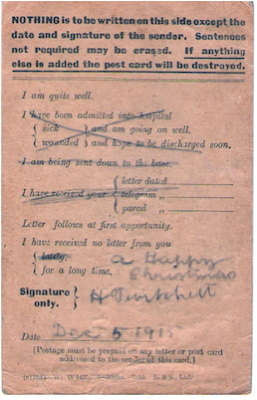 NOTHING is to be written on this side except the
date and signature of the sender. Sentences
not required may be erased. If anything
else is added the post card will be destroyed.
I am quite well.
I have been admitted into hospital
{ sick } and am going on well.
{ wounded } and hope to be discharged soon.
I am being sent down to the base.
{ letter dated
I have received your { telegram „
{ parcel „
Letter follows at first opportunity.
I have received no letter from you
{ lately. a Happy
{ for a long time. Christmas
Signature } H
only.
Date Dec 5 1915
(Postage must be prepaid on any letter or post card
addressed to the sender of this card.)